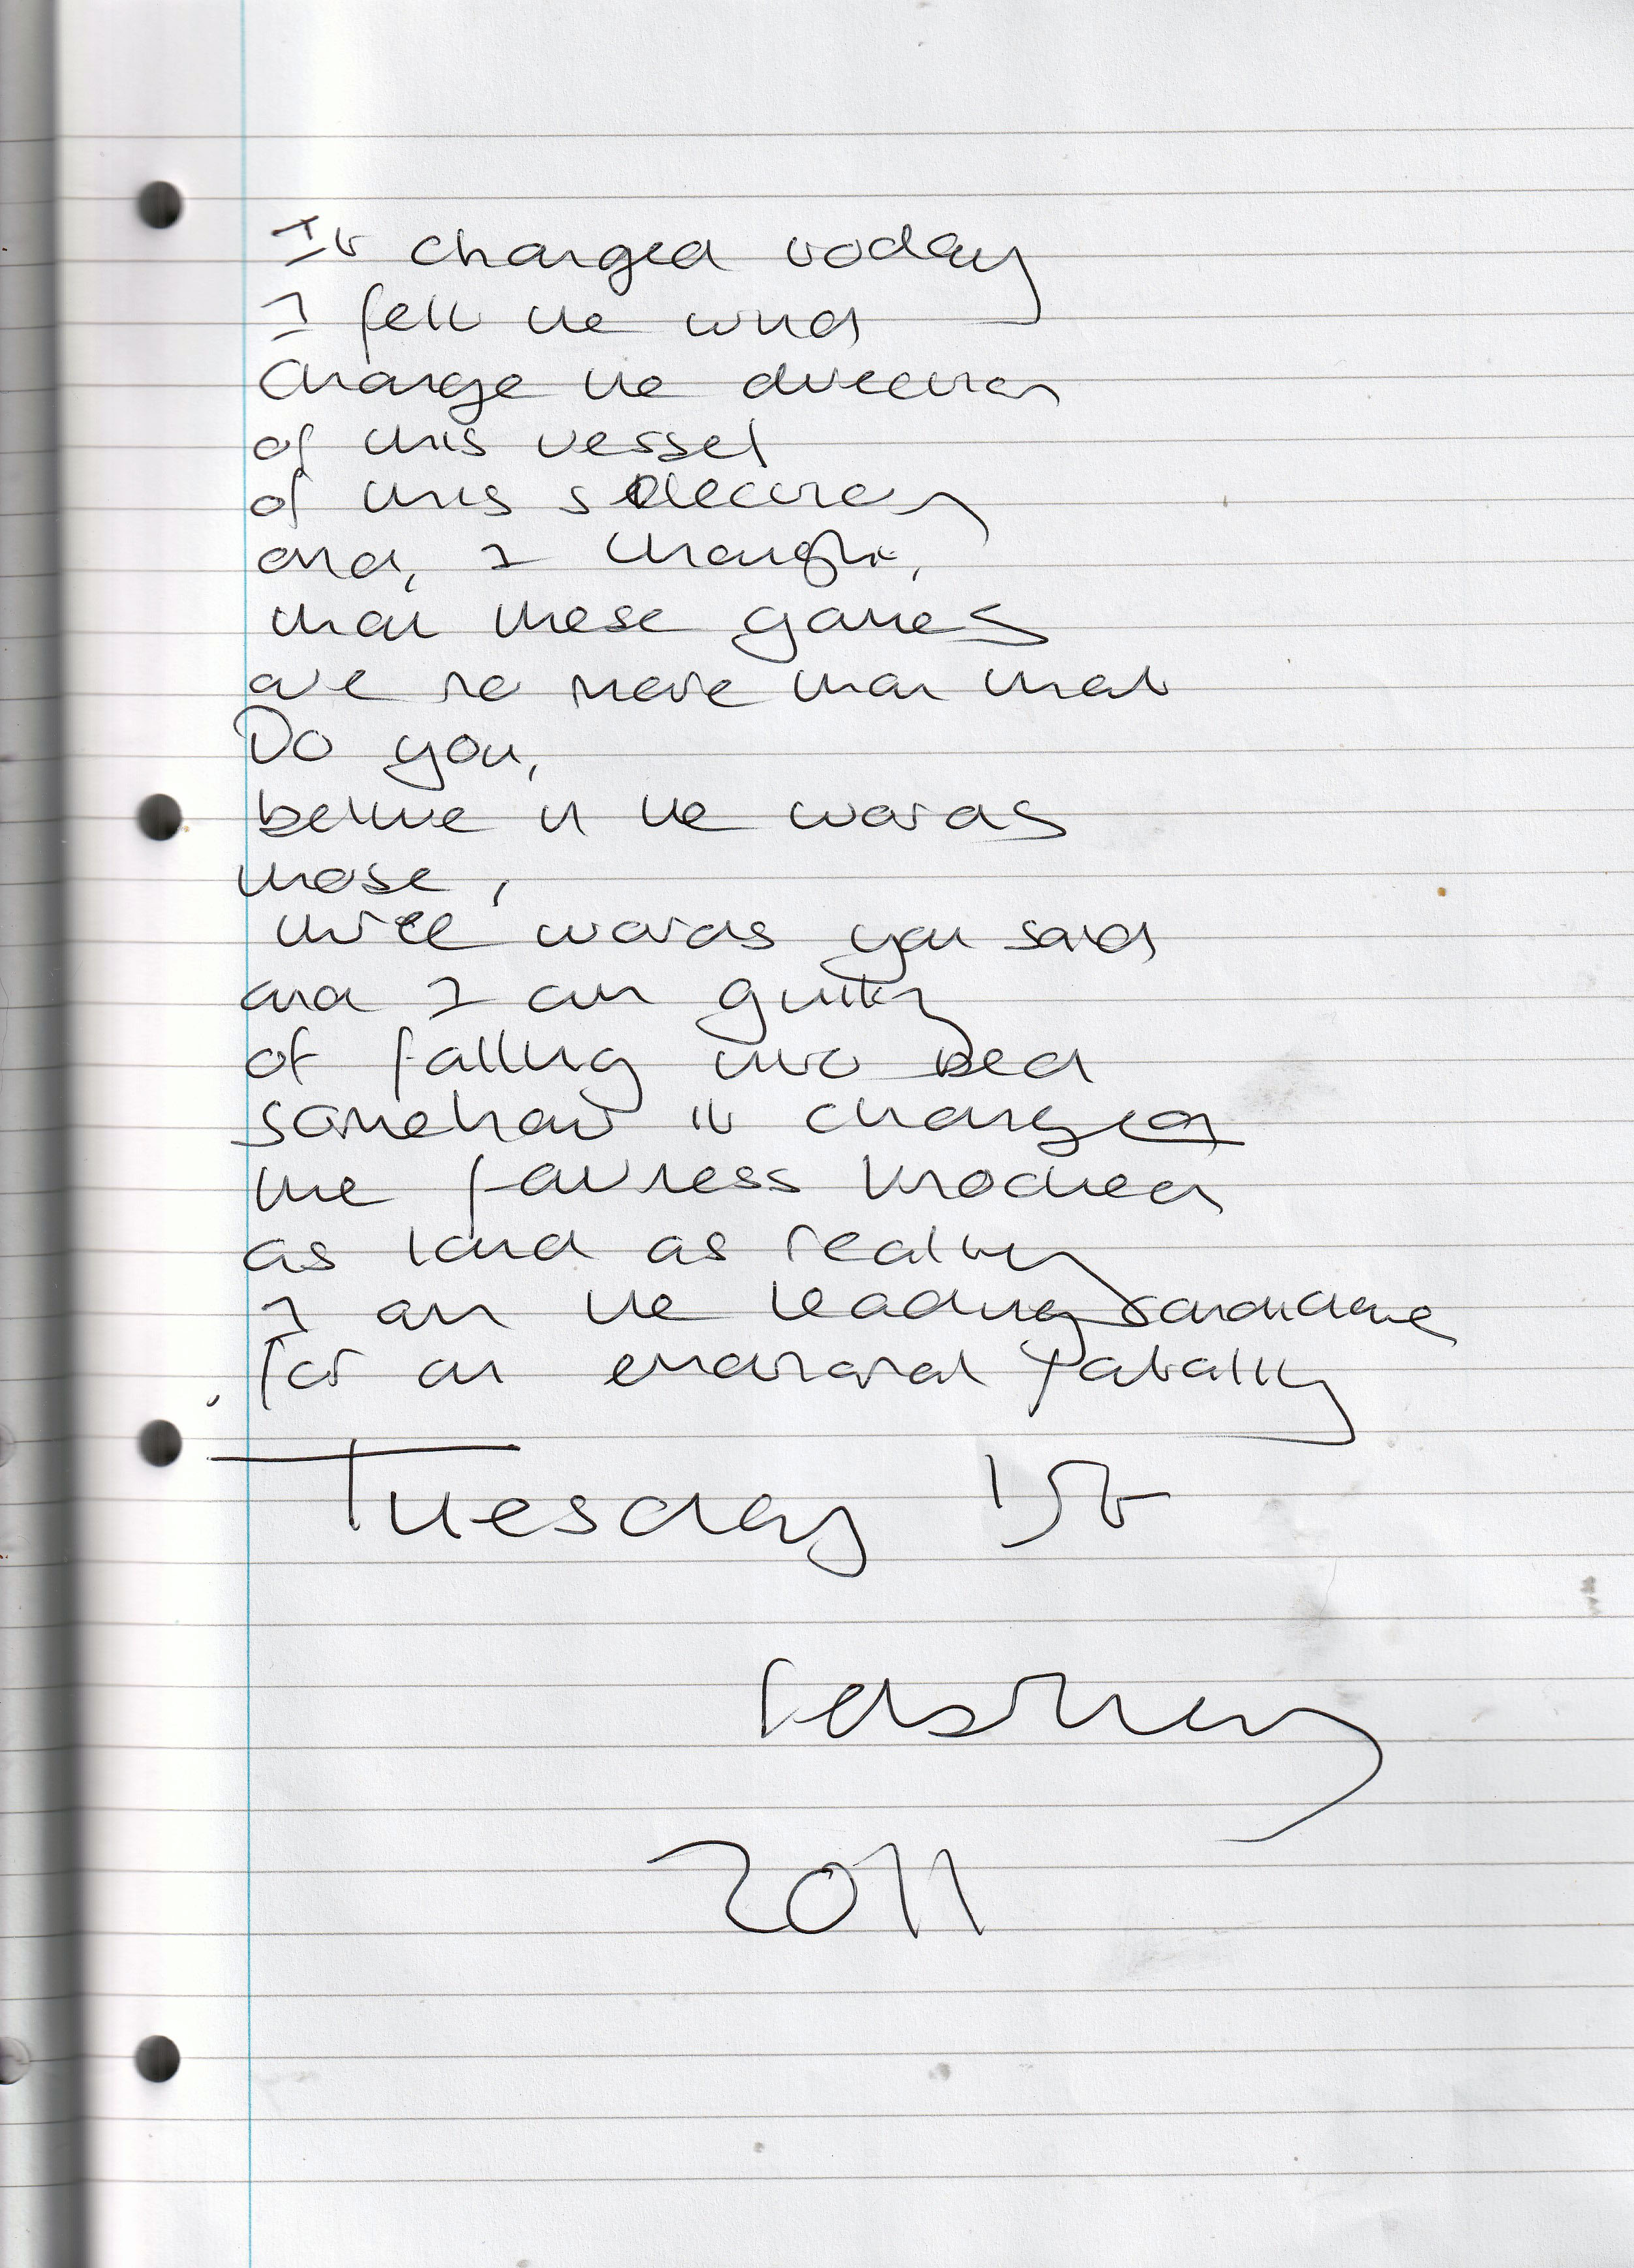 It changed today
I felt the wind
Change the direction
of this vessel
of this selection
and, I thought,
that these games
are no more than that
Do you,
believe in the words
those,
three words you said
and I am guilty
of falling into bed
somehow it changed
the fairness knocked
as loud as reality
I am the leading candidate
for an emotional fatality
Tuesday 1st
February
2011